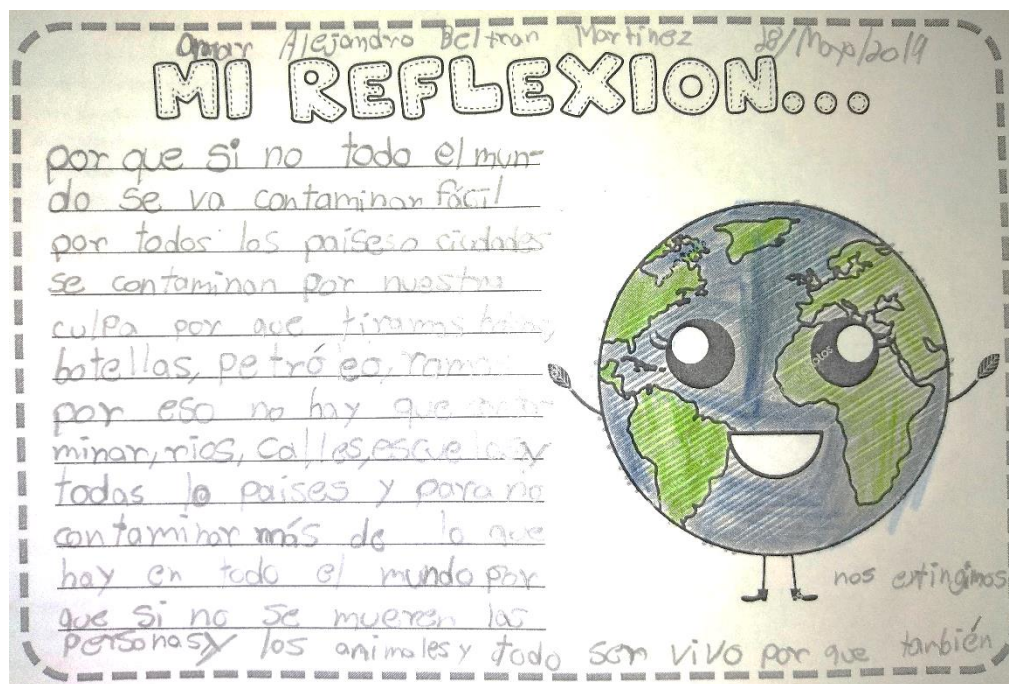 Omar Alejandro Beltran Martinez 28/Mayo/2019
MI REFLEXION...
por que si no todo el mun-
do se va contaminar fácil
por todos los paises o ciudades
se contaminan por nuestra
culpa por que tiramos
botellas, petróeo,
por eso no hay que
minar, rios, calles, escuelas y
todas lo paises y para no
contaminar más de lo que
hay en todo el mundo por
que si no se mueren las
personas y los animales y todo ser vivo por que también
nos extingimos